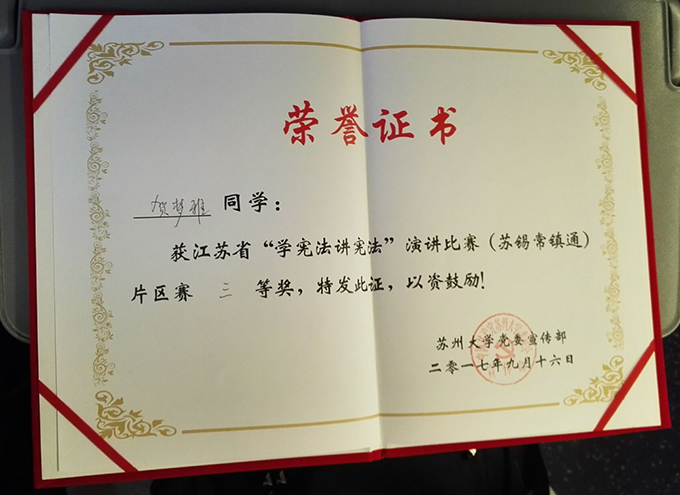 荣誉证书
贺梦雅 同学：
获江苏省“学宪法讲宪法”演讲比赛（苏锡常镇通）
片区赛 三 等奖，特发此证，以资鼓励！
苏州大学党委宣传部
二零一七年九月十六日